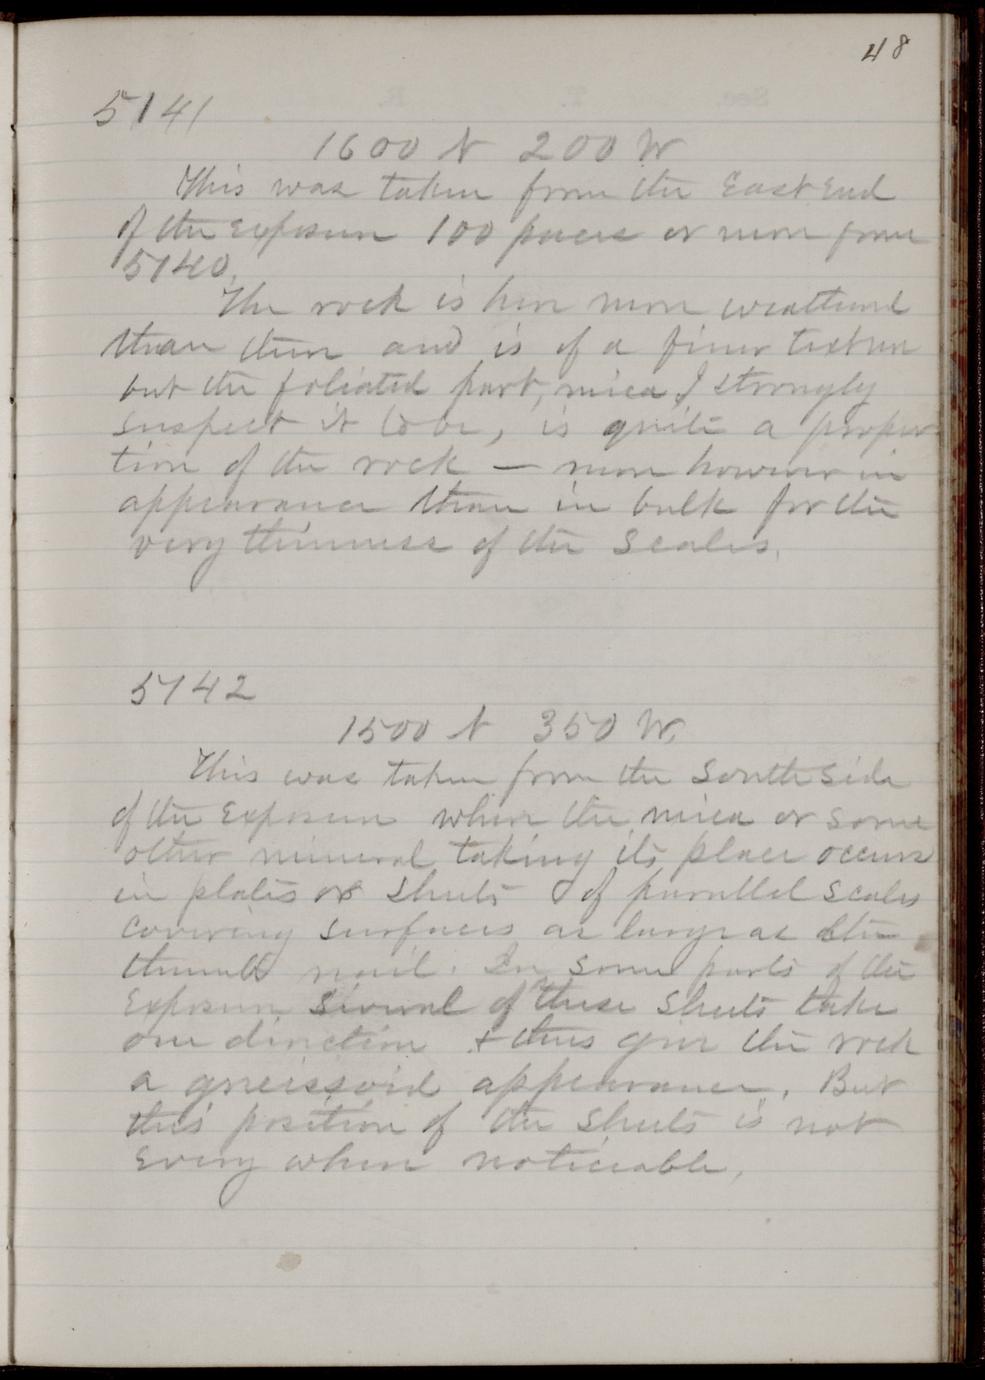 48
5141
1600 N 200 W
This was taken from the East End
of the exposure 100 paces or more from
5140.
The rock is here more weathered
than there and is of a finer texture
but the foliated part, mica I strongly
suspect it to be, is quite a propor
tion of the rock — more however in
appearance than in bulk for the
very thinness of the scales.
5142
1500 N 350 W.
This was taken from the South Side
of the Exposure where the mica or some
other mineral taking its place occurs
in plates or sheets of parallel scales
covering surfaces as large as the
thumb nail. In some parts of the
Exposure several of these sheets take
one direction & thus give the rock
a gneissoid appearance. But
this position of the sheets is not
every where noticeable.